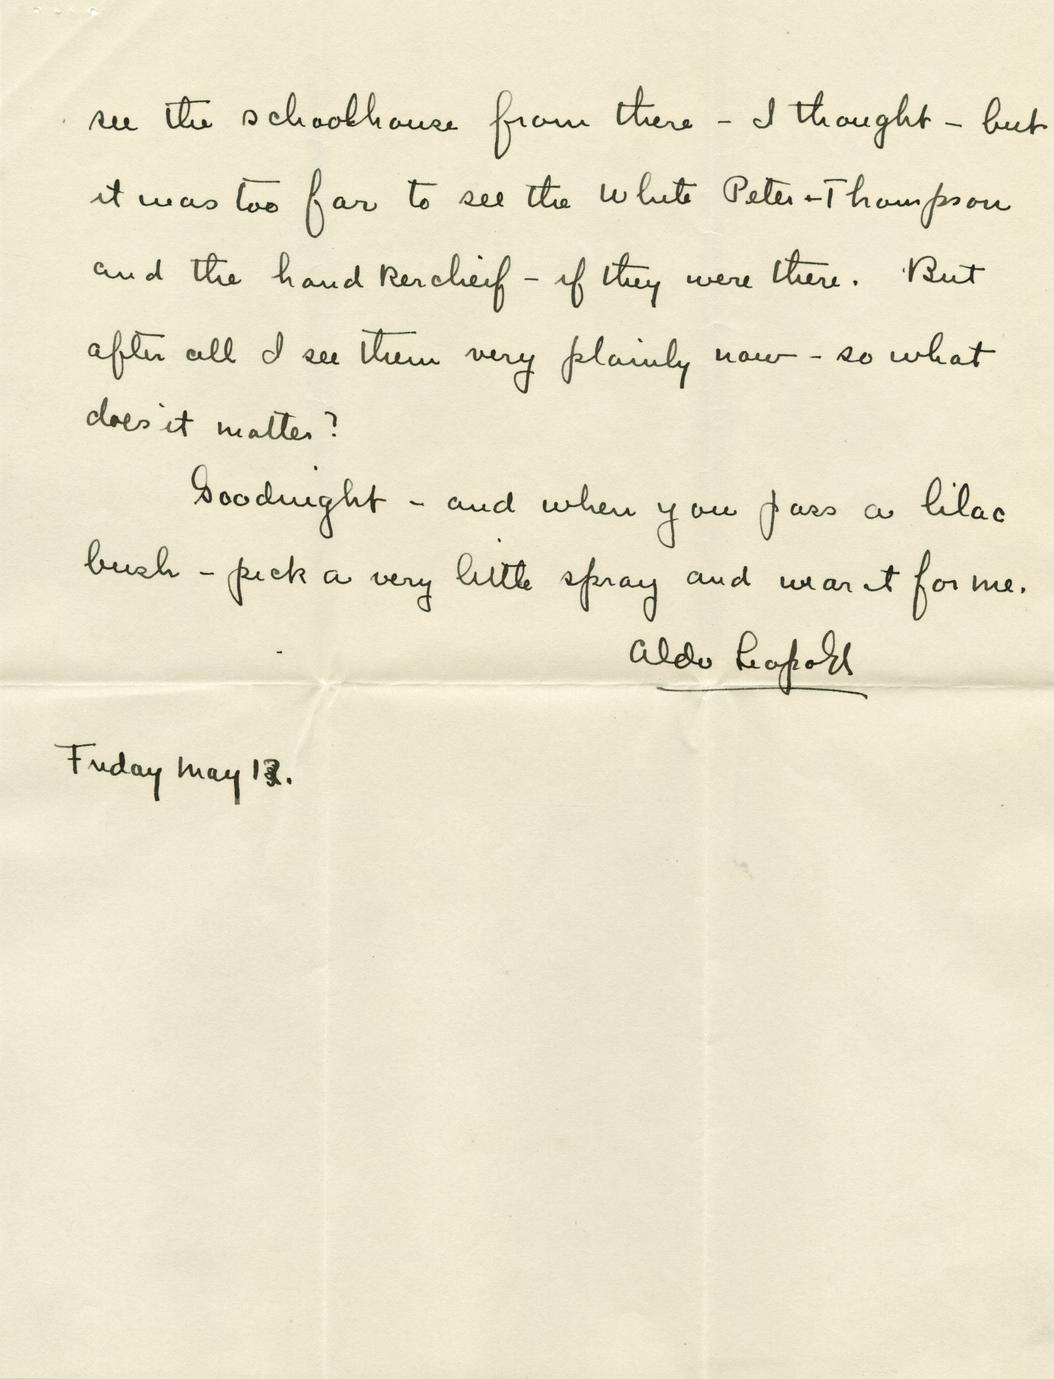 see the schoolhouse from there - I thought - but
it was too far to see the White Peter-Thompson
and the handkercheif - if they were there. But
after all I see them very plainly now - so what
does it matter?
Goodnight - and when you pass a lilac
bush - pick a very little spray and wear it for me.
Aldo Leopold
Friday May 12.